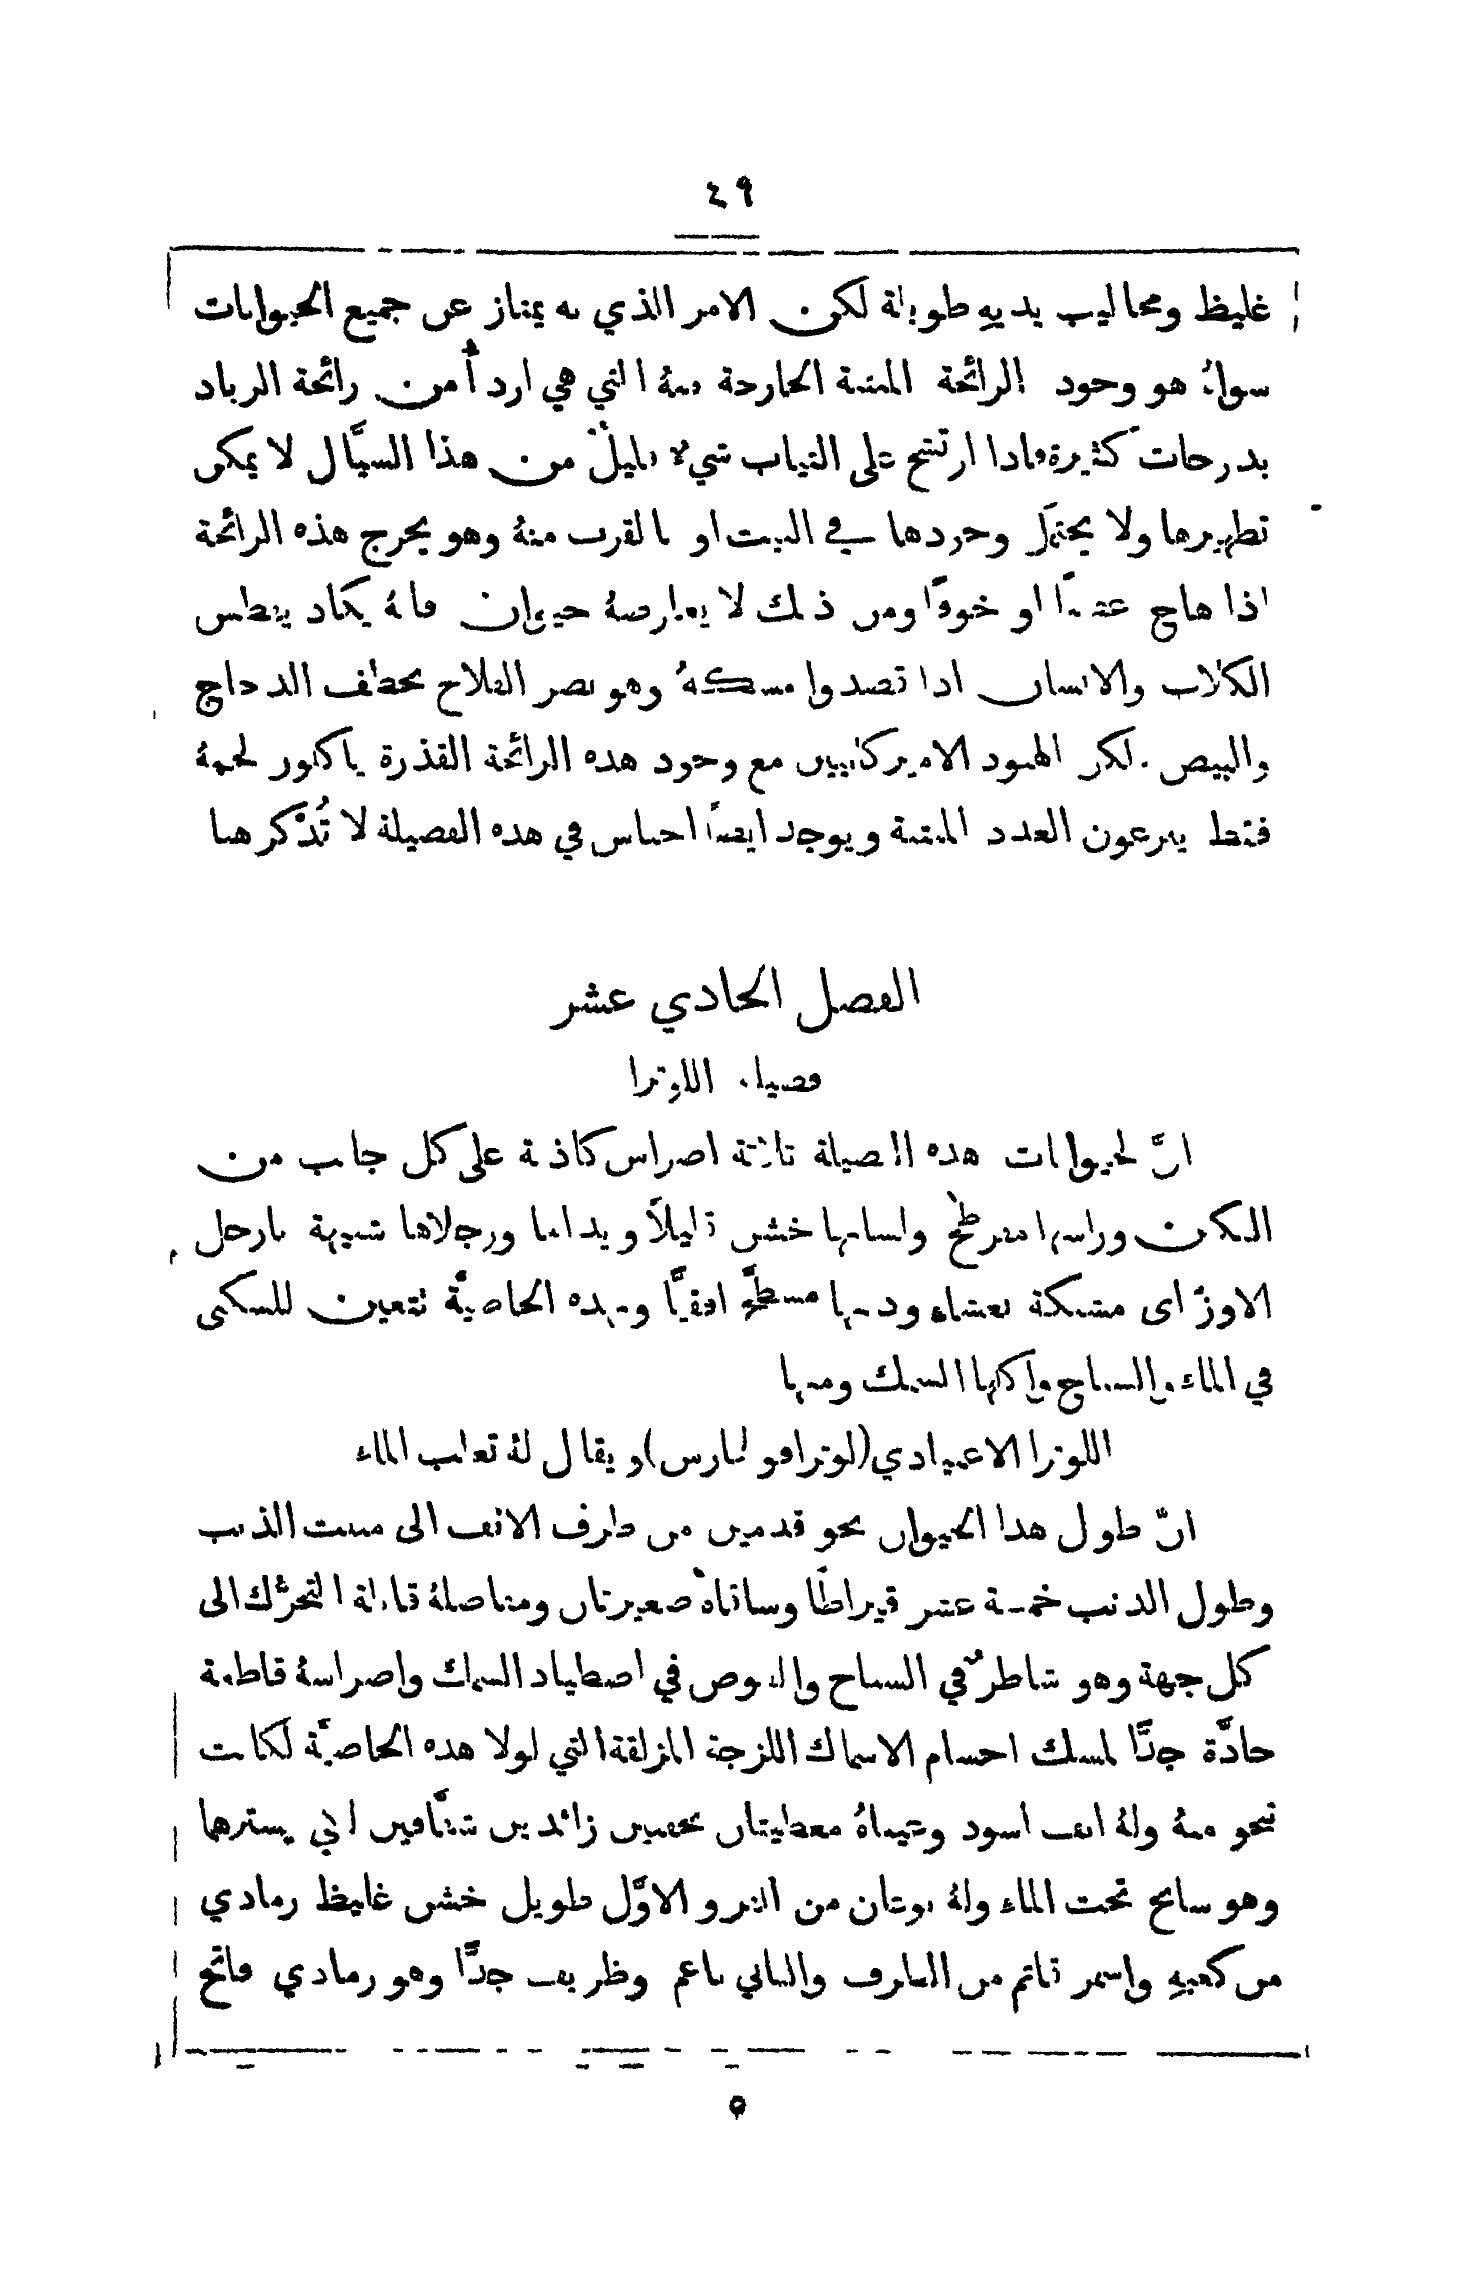 ٤٩
غليظ ومخاليب يديهِ طويلة لكن الامر الذي به يمتاز عن جميع الحيوانات
سواهُ هو وجود الرائحة المنتنة الخارجة منهُ التي هي اردأ من رائحة الزباد
بدرجات كثيرة فاذا ارتشح على الثياب شيء قليل من هذا السيَّال لا يمكن
تطهيرها ولا يحتمل وجودها في البيت او بالقرب منهُ وهو يخرج هذه الرائحة
اذا هاج غضبًا او خوفًا ومن ذلك لا يعارضهُ حيوان فانهُ يكاد يفطس
الكلاب والانسان اذا قصدوا مسكهُ وهو يضر الفلاح بخطف الدجاج
والبيض. لكن الهنود الاميركانيين مع وجود هذه الرائحة القذرة ياكلون لحمهُ
فقط ينزعون الغدد المنتنة ويوجد ايضًا اجناس في هذه الفصيلة لا تُذكر هنا
الفصل الحادي عشر
فصيلة اللوترا
انَّ لحيوانات هذه الفصيلة ثلاثة اضراس كاذبة على كل جانب من
الفكين وراسها مفرطح ولسانها خشن قليلًا ويداها ورجلاها شبيهة بارجل
الاوزّ اي مشبكة بغشاء وذنبها مسطَّح افقيًّا وبهذه الخاصيَّة تتعين للسكنى
في الماء والسباح واكلها السمك ومنها
اللوترا الاعتيادي (لوترا فولغارس) ويقال لهُ ثعلب الماء
انَّ طول هذا الحيوان نحو قدمين من طرف الانف الى منبت الذنب
وطول الذنب خمسة عشر قيراطًا وساقاهُ صغيرتان ومفاصلهُ قابلة التحرُّك الى
كل جهة وهو شاطرٌ في السباح والغوص في اصطياد السمك واضراسهُ قاطعة
حادَّة جدًّا لمسك اجسام الاسماك اللزجة المزلقة التي لولا هذه الخاصيَّة لكانت
تنجو منهُ ولهُ انف اسود وعيناهُ مغطيتان بجفنين زائدين شفَّافين لكي يسترهما
وهو سابح تحت الماء ولهُ نوعان من الفرو الاوَّل طويل خشن غليظ رمادي
من كعبهِ واسمر قاتم من الطرف والثاني ناعم وظريف جدًّا وهو رمادي فاتح
٥